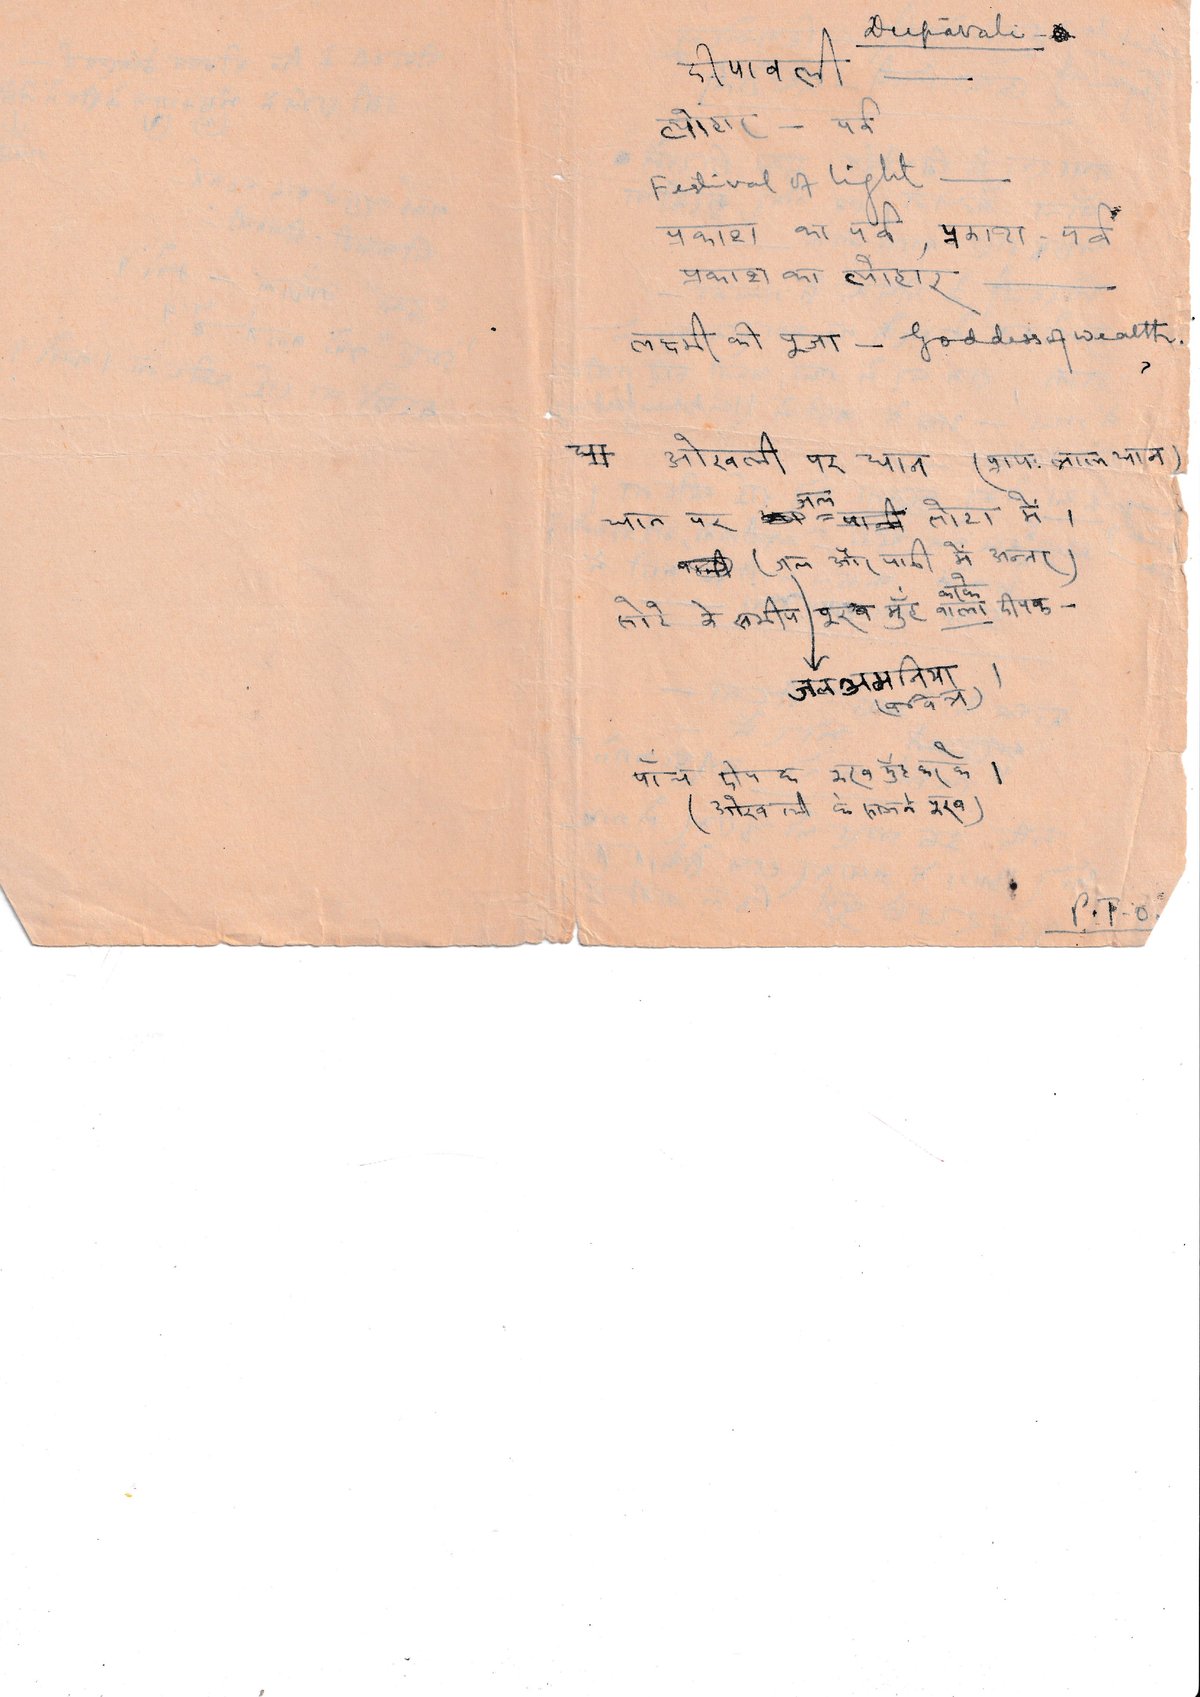 Deepavali -
दीपावली —
त्योहार - पर्व
Festival of Light —
प्रकाश का पर्व, प्रकाश-पर्व
प्रकाश का त्योहार —
लक्ष्मी की पूजा - Goddess of Wealth.
ओखली पर धान (प्रायः लाल धान)
धान पर जल = लोटा में।
(जल और पानी में अन्तर)
करके
लोटे के समीप पूरब मुँह वाला दीपक -
जल अमनिया।
(पवित्र)
पाँच दीपक पूरब मुँह करके।
(ओखली के सामने पूरब)
P.T.O.